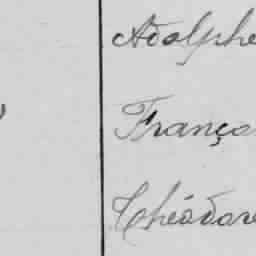 Adolphe
França
Théodore